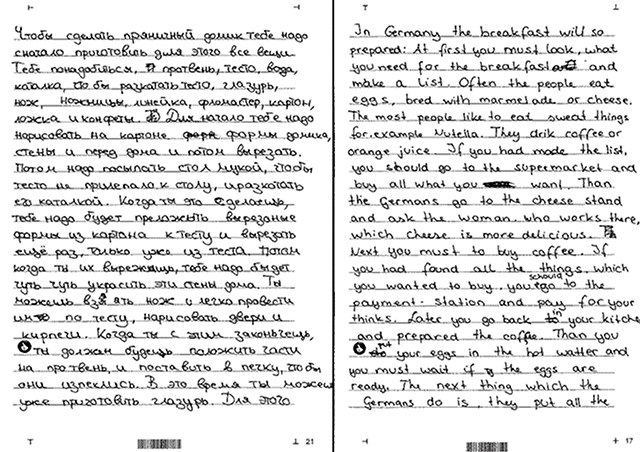 Чтобы сделать пряничный домик тебе надо
сначало приготовить для этого все вещи
Тебе понадобиться. Я протвень, тесто, вода,
каталка, что бы разкотать тесто, глазурь,
нож, ножницы, линейка, фломастер, картон,
ложка и конфеты. Для начало тебе надо
нарисовать на картоне формы домика,
стены и перед дома и потом вырезать.
Потом надо посыпать стол мукой, чтобы
тесто не прилепало к столу, и разкотать
его каталкой. Когда ты это сделаешь,
тебе надо будет преложыть вырезаные
формы из картона к тесту и вырезать
ещё раз, только уже из теста. Потом
когда ты их вырежешь, тебе надо быдет
чуть чуть украсить эти стены дома. Ты
можешь взять нож и легко провести
им по тесту, нарисовать двери и
кирпечи. Когда ты с этим законьчешь,
ты должан будешь положить части
на протвень, и поставить в печку, чтобы
они изпеклись. В это время ты можешь
уже приготовить глазурь. Для этого
21
In Germany the breakfast will so
prepared: At first you must look, what
you need for the breakfast and
make a list. Often the people eat
eggs, bred with marmelade or cheese.
The most people like to eat sweat things
for example Nutella. They drik coffee or
orange juice. If you had made the list,
you should go to the supermarket and
buy all what you want. Than
the Germans go to the cheese stand
and ask the woman, who works there,
which cheese is more delicious.
Next you must to buy coffee. If
you had found all the things, which
you wanted to buy, you should go to the
payment-station and pay for your
thinks. Later you go back in your kitchen
and prepared the coffe. Than you
put your eggs in the hot watter and
you must wait if the eggs are
ready. The next thing which the
Germans do is, they put all the
17